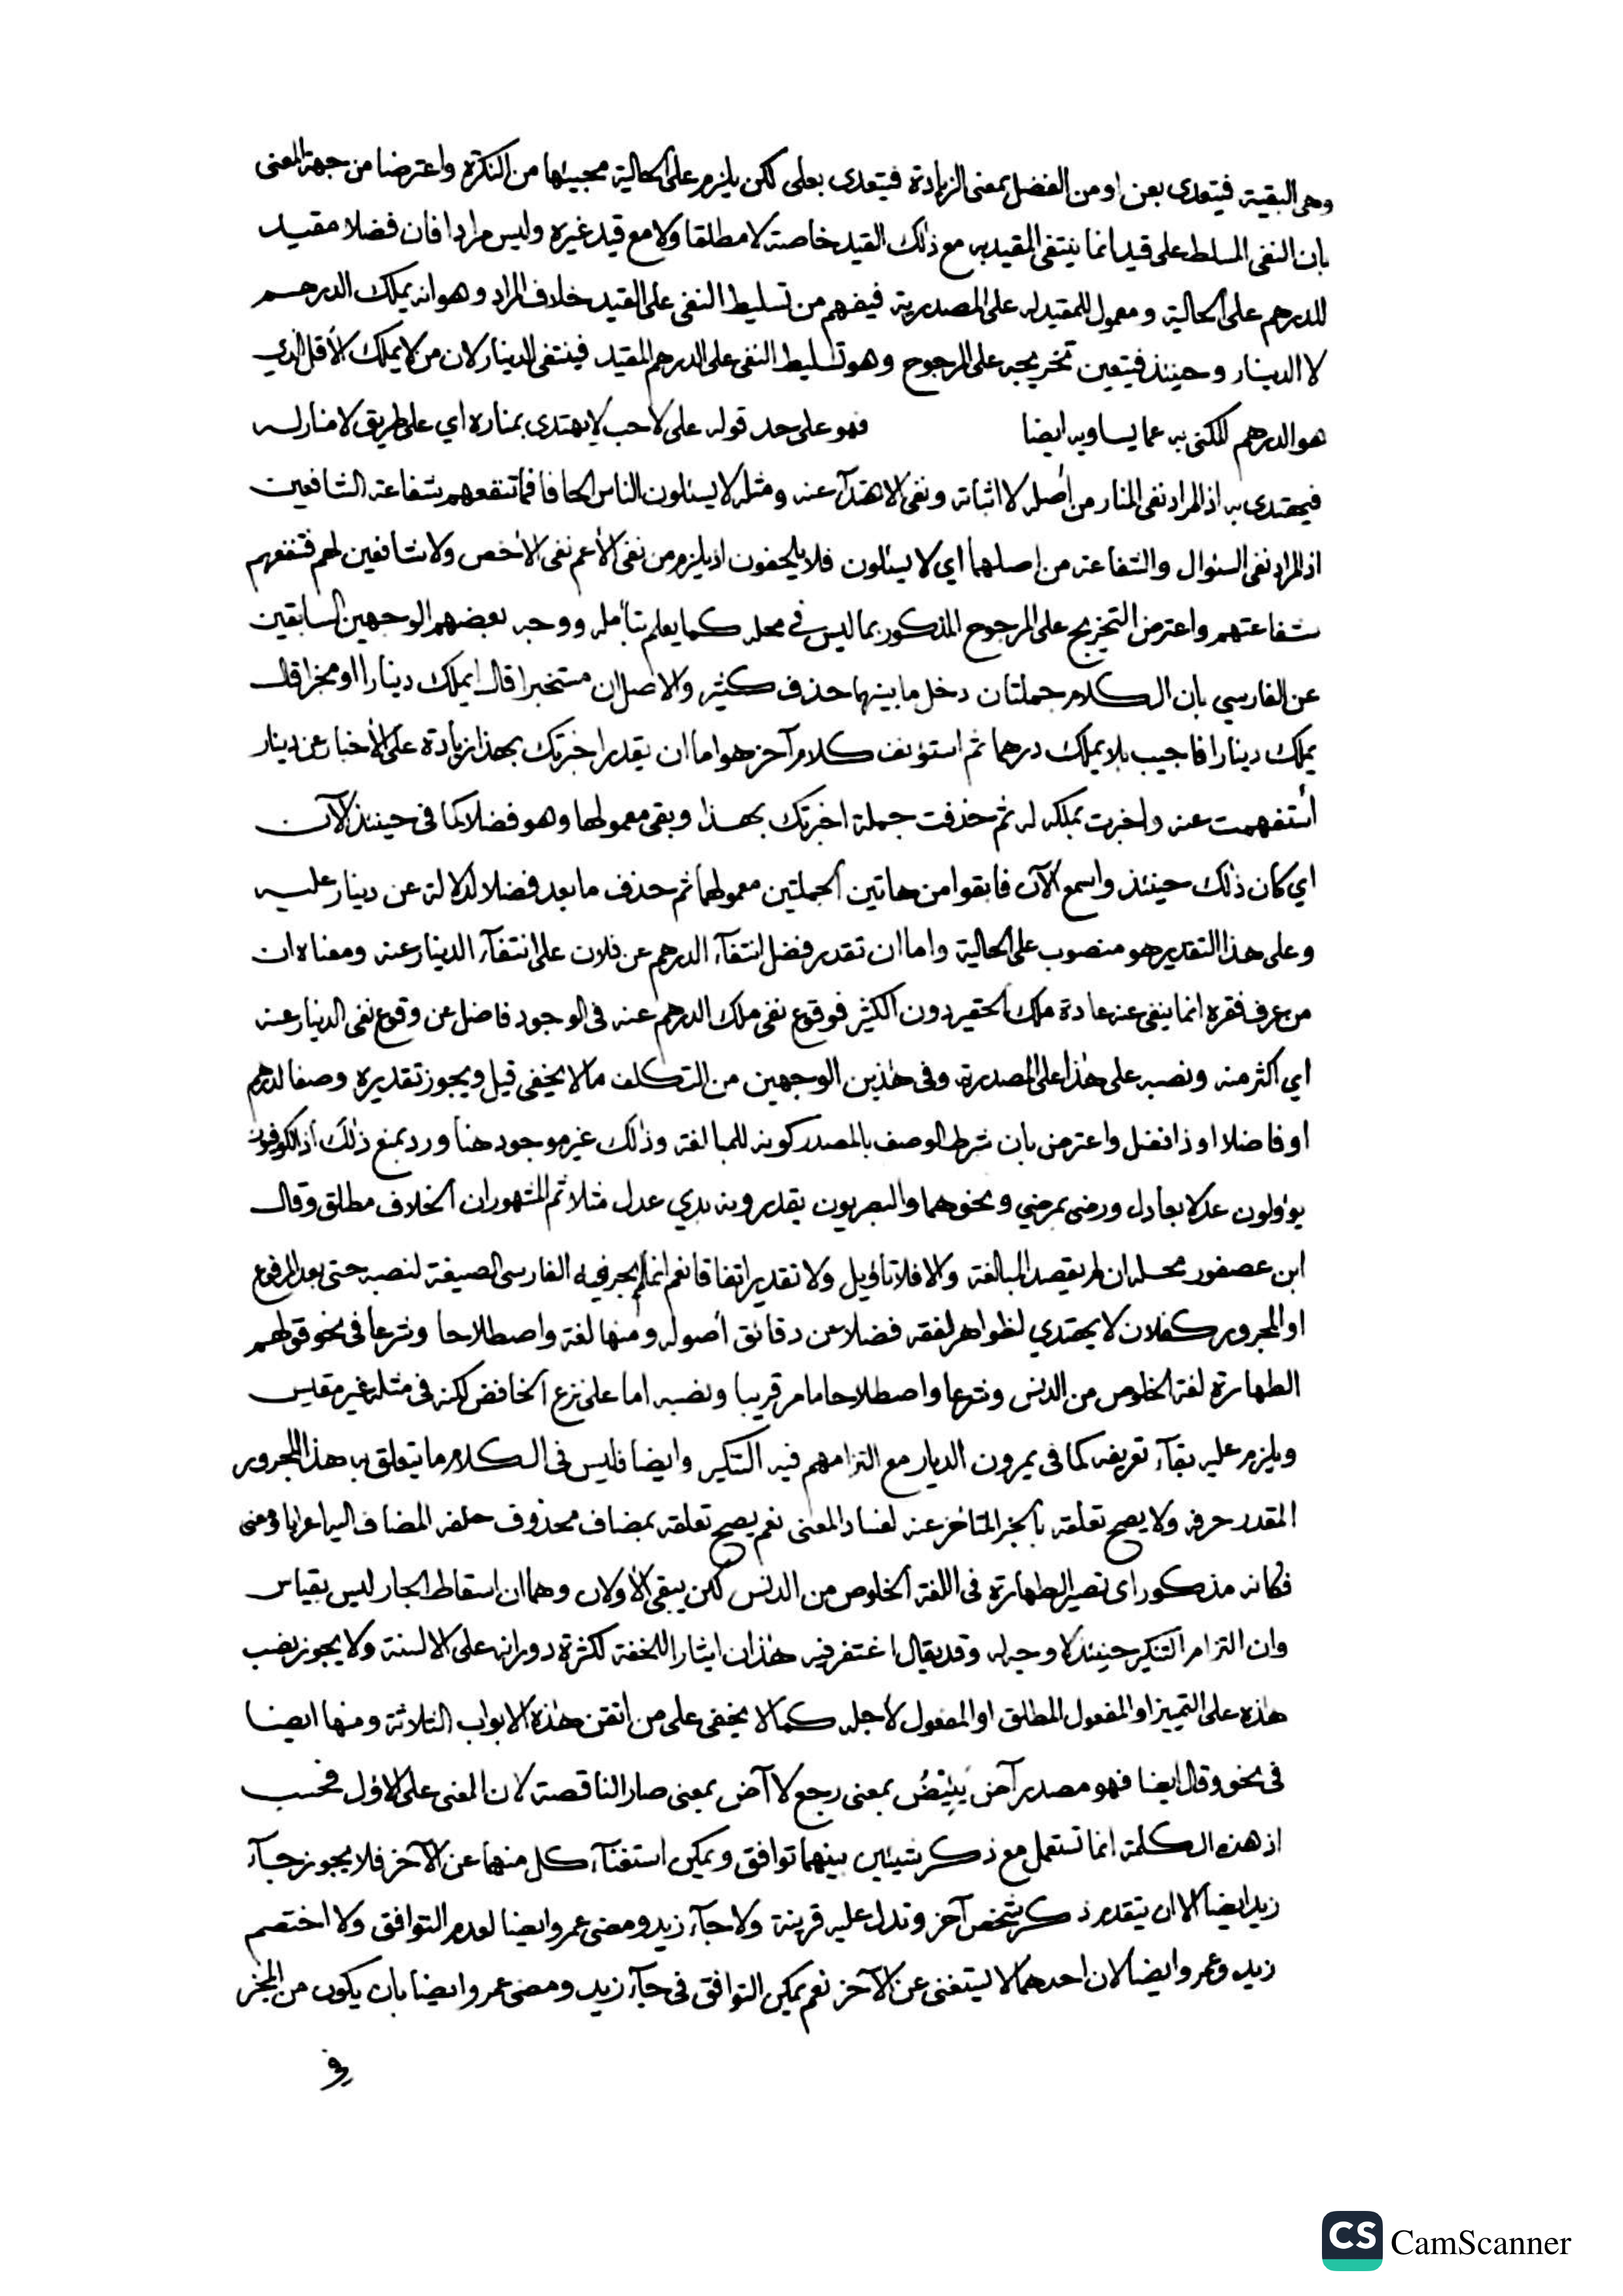 وهي البقية فيتعدى بعن او من الفضل بمعنى الزيادة فيتعدى بعلى لكن يلزم على الحالية مجيئها من النكرة واعترضا من جهة المعنى
بان النفى المسلط على قيد انما ينتفى المقيد به مع ذلك القيد خاصة لا مطلقا ولا مع قيد غيره وليس مرادا فان فضلا مقيد
للدرهم على الحالية ومعمول للمقيد له على المصدرية فيفهم من تسليط النفى على القيد خلاف المراد وهو انه يملك الدرهم
لا الدينار وحينئذ فيتعين تخريجه على المرجوح وهو تسليط النفى على الدرهم المقيد فينتفى الدينار لان من لا يملك الأقل الذي
هو الدرهم المكنى به عما يساويه ايضا فهو على حد قوله على لاحب لا يهتدى بمناره اي على طريق لا منار له
فيهتدى به اذ المراد نفى المنار من أصله لا اثباته ونفى الاهتدآء عنه ومثله لا يسئلون الناس الحافا فما تنفعهم شفاعة الشافعين
اذ المراد نفى السئوال والشفاعة من اصلهما اي لا يسئلون فلا يلحفون اذ يلزم من نفى الأعم نفى الأخص ولا شافعين لهم فتنفعهم
شفاعتهم واعترض التخريج على المرجوح المذكور بما ليس في محله كما يعلم بتأمله ووجه بعضهم الوجهين السابقين
عن الفارسي بان الكلام جملتان دخل ما بينهما حذف كثير والاصل ان مستخبرا قال ايملك دينارا او مخبرا قال
يملك دينارا فاجيب بلا يملك درهما ثم استؤنف كلام آخر هو اما ان يقدر اخبرتك بهذا زيادة على الأخبار عن دينار
أستفهمت عنه واخبرت بملكه له ثم حذفت جملة اخبرتك بهذا وبقى معمولها وهو فضلا كما فى حينئذ الآن
اي كان ذلك حينئذ واسمع الآن فابقوا من هاتين الجملتين معمولهما ثم حذف ما بعد فضلا لدلالة عن دينار عليه
وعلى هذا التقدير هو منصوب على الحالية واما ان تقدر فضل انتفآء الدرهم عن فلان على انتفآء الدينار عنه ومعناه ان
من عرف فقره انما ينفى عنه عادة ملك الحقير دون الكثير فوقوع نفى ملك الدرهم عنه فى الوجود فاضل عن وقوع نفى الدينار عنه
اي اكثر منه ونصبه على هذا على المصدرية وفى هذين الوجهين من التكلف ما لا يخفى قيل ويجوز تقديره وصفا لدرهم
او فاضلا او ذا فضل واعترض بان شرط الوصف بالمصدر كونه للمبالغة وذلك غير موجود هنا ورد بمنع ذلك اذ الكوفيون
يؤولون عدلا بعادل ورضى بمرضي ونحوهما والبصريون يقدرونه بذي عدل مثلا ثم المشهور ان الخلاف مطلق وقال
ابن عصفور محله ان لم يقصد المبالغة والا فلا تأويل ولا تقدير اتفاقا نعم انما لم يجر فيه الفارسى الصيفة لنصبه حتى بعد المرفوع
او المجرور كفلان لا يهتدي لظواهر الفقه فضلا عن دقائق أصوله ومنها لغة واصطلاحا وشرعا فى نحو قولهم
الطهارة لغة الخلوص من الدنس وشرعا واصطلاحا ما مر قريبا ونصبه اما على نزع الخافض لكنه فى مثله غير مقيس
ويلزم عليه بقآء تعريفه كما فى يمرون الديار مع التزامهم فيه التنكير وايضا فليس فى الكلام ما يتعلق به هذا المجرور
المقدر حرفه ولا يصح تعلقه بالخبر المتأخر عنه لفساد المعنى نعم يصح تعلقه بمضاف محذوف خلفه المضاف اليه اعرابا ومعنى
فكانه مذكور اى تفسير الطهارة فى اللغة الخلوص من الدنس لكن يبقى الأولان وهما ان اسقاط الجار ليس بقياس
وان التزام التنكير حينئذ لا وجه له وقد يقال اغتفر فيه هذان ايثارا للخفة لكثرة دورانه على الالسنة ولا يجوز نصب
هذه على التمييز او المفعول المطلق او المفعول لأجله كما لا يخفى على من أتقن هذه الابواب الثلاثة ومنها ايضا
فى نحو وقال ايضا فهو مصدر آض يَئِيْضُ بمعنى رجع لا آض بمعنى صار الناقصة لان المعنى على الاول فحسب
اذ هذه الكلمة انما تستعمل مع ذكر شيئين بينهما توافق ويمكن استغنآء كل منهما عن الآخر فلا يجوز جآء
زيد ايضا الا ان يتقدم ذكر شخص آخر وتدل عليه قرينة ولا جآء زيد ومضى عمرو ايضا لعدم التوافق ولا اختصم
زيد وعمرو ايضا لان احدهما لا يستغنى عن الآخر نعم يمكن التوافق فى جآء زيد ومضى عمرو ايضا بان يكون من المخبر
فى
CS CamScanner